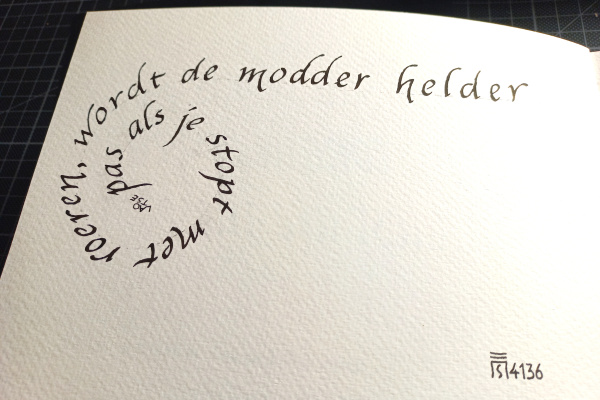 pas als je stopt met roeren, wordt de modder helder
LAO TSE
4136